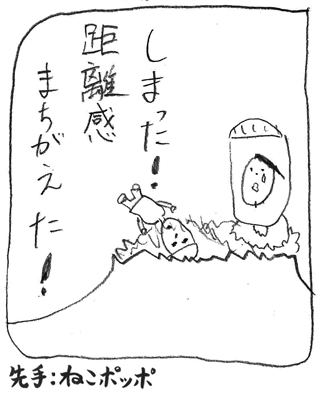 しまった！
距離感
まちがえた！
先手：ねこポッポ